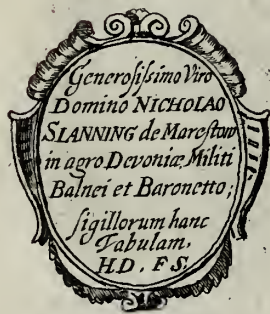 Generosissimo Viro
Domino NICHOLAO
SLANNING de Marestow
in agro Devoniæ, Militi
Balnei et Baronetto;
sigillorum hanc
Tabulam,
H.D. F S.